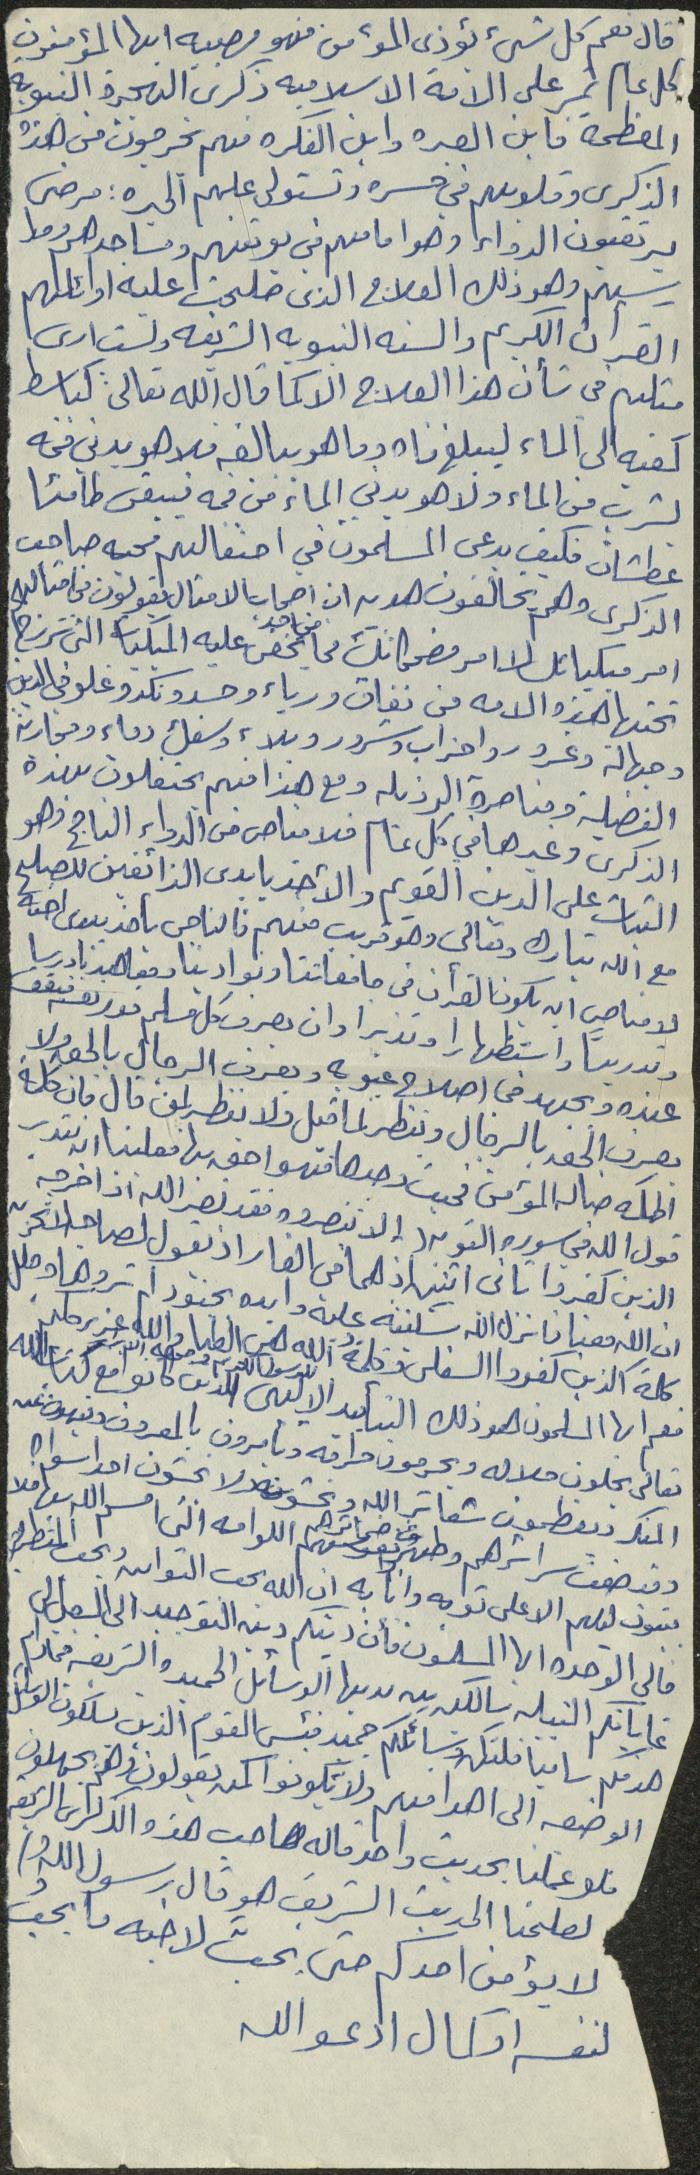 قال نعم كل شيء تؤذى المؤمن فهو مصيبه ايها المؤمنون
كل عام تمر على الامة الاسلاميه ذكرى الهجرة النبويه
المعظمه فاين العبره واين الفكره فهم يخرجون من هذه
الذكرى وقلوبهم في حسره وتستولى عليهم الحيره: مرضى
يرتقبون الدواء وهو امامهم في بيوتهم ومساجدهم وما
بينهم وهو ذلك العلاج الذى صلحت عليه اوائلهم
القرأن الكريم والسنه النبويه الشريفه وليس ارى
مثلهم في شأن هذا العلاج الا كما قال الله تعالى: كباسط
كفيه الى الماء ليبلغ فاه وما هو ببالغه فلا هو يدني فمه
لشرب من الماء ولا هو يدني الماء من فمه فيبقى ظامئا
عطشان فكيف يدعى المسلمون في احتفالهم محبه صاحب
الذكرى وهم يخالفون هديه ان اصحاب الامثال يقولون في امثالهم
امر مبكياتك لا امر مضحكاتك عليه المبكيات التى ترزح
تحتها هذه الامه من نفاق ورياء وحسد ونكد وغلو في الدين
وجهالة وغرور واحزاب وشرور وبلاء وسفك دماء ومحاربة
الفضيله ومناصرة الرذيله ومع هذا فهم يحتفلون بهذه
الذكرى وغيرها في كل عام فلا مناص من الدواء الناجح وهو
الثبات على الدين القويم والأخذ بايدى الزائفين للصلح
مع الله تبارك وتعالى وهو قريب منهم فالناجى ياخذ بيدى اخيه
لا مناص ان يكون القرأن في جامعاتنا ونوادينا ومعاهدنا درسا
وتدريسا واستظهارا وتدبرا وان يعرف كل مسلم قدر نفسه فيقف
عنده ويجتهد في اصلاح عيوبه ويعرف الرجال بالحق ولا
يعرف الحق بالرجال وينظر لما قيل ولا ينظر لمن قال فان كلمة
الحكمه ضالة المؤمن فحيث وجدها فهو احق بها فعلينا ان نتدبر
قول الله في سوره التوبه (إلا تنصروه فقد نصره الله اذ اخرجه
الذين كفروا ثانى اثنين اذ هما في الغار اذ يقول لصاحبه لا تحزن
ان الله معنا فانزل الله سكينته عليه وايده بجنود لم تروها وجعل
كلمة الذين كفروا السفلى وكلمة الله هى العليا والله عزيز حكيم
نعم ايها المسلمون هو ذلك التأييد الالهى الذين كانوا مع كتاب الله
تعالى يحلون حلاله ويحرمون حرامه ويأمرون بالمعروف وينهون عن
المنكر ويعظمون شعائر الله ويخشونه ولا يخشون احدا سواه
وقد صفت سرائرهم وطهرت نفوسهم اللوامه التى اقسم الله بها فلا
يبيتون ليلهم الا على توبه وانابه ان الله يحب التوابين ويحب المتطهرين
فالى الوحده ايها المسلمون فأن دينكم دين التوحيد الى الوصول الى
غاياتكم النبيله سالكين بدينها الوسائل الحميده الشريفه فمادام
هدفكم ساميا فلتكن وسائلكم حميده فبئس القوم الذين يسلكون الوسائل
الوضيعه الى اهدافهم ولا تكونوا كمن يقولون وهم يجهلون
فلو عملنا بحديث واحد قاله صاحب هذه الذكرى الشريفه
لصلحنا الحديث الشريف هو قال رسول الله (ص)
لا يؤمن احدكم حتى يحب لاخيه ما يحب
لنفسه او كما قال ادعو الله